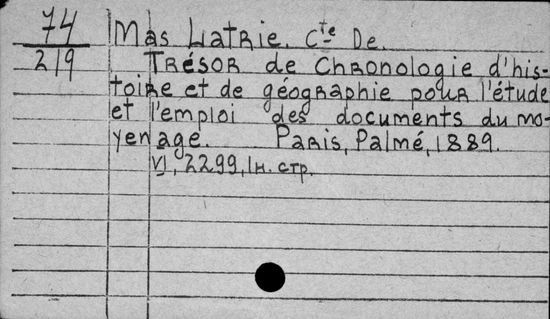 74
219
Mas Latrie. Cte De.
Trésor de Chronologie d'his-
toire et de géographie pour l'étude
et l'emploi des documents du mo-
yen age. Paris, Palmé, 1889.
VI, 2299, 1н. стр.